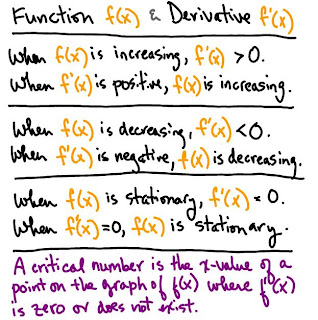 Function f(x) & Derivative f'(x)
When f(x) is increasing, f'(x) > 0.
When f'(x) is positive, f(x) is increasing.
When f(x) is decreasing, f'(x) < 0.
When f'(x) is negative, f(x) is decreasing.
When f(x) is stationary, f'(x) = 0.
When f'(x) = 0, f(x) is stationary.
A critical number is the x-value of a
point on the graph of f(x) where f'(x)
is zero or does not exist.